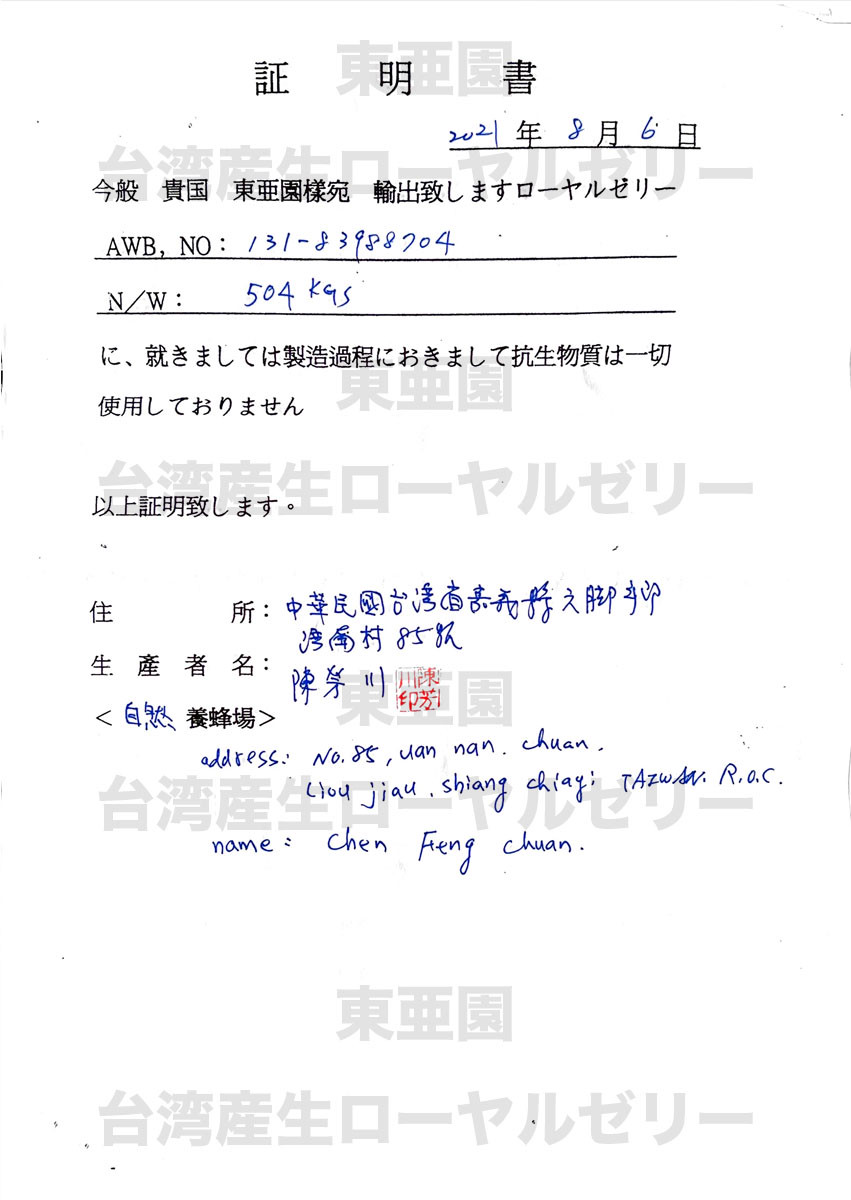 証明書
2021年8月6日
今般 貴国 東亜園様宛 輸出致しますローヤルゼリー
AWB, NO: 131-83988704
N/W: 504 kgs
に、就きましては製造過程におきまして抗生物質は一切
使用しておりません
以上証明致します。
住所: 中華民國台湾省嘉義縣六脚鄉
湾南村85號
生産者名: 陳 川
<自然養蜂場>
address: No.85, uan nan. chuan.
Liou jiau. shiang chiayi TAIWAN. R.O.C.
name: Chen Feng chuan.
東亜園
台湾産生ローヤルゼリー
東亜園
台湾産生ローヤルゼリー
東亜園
台湾産生ローヤルゼリー
東亜園
台湾産生ローヤルゼリー